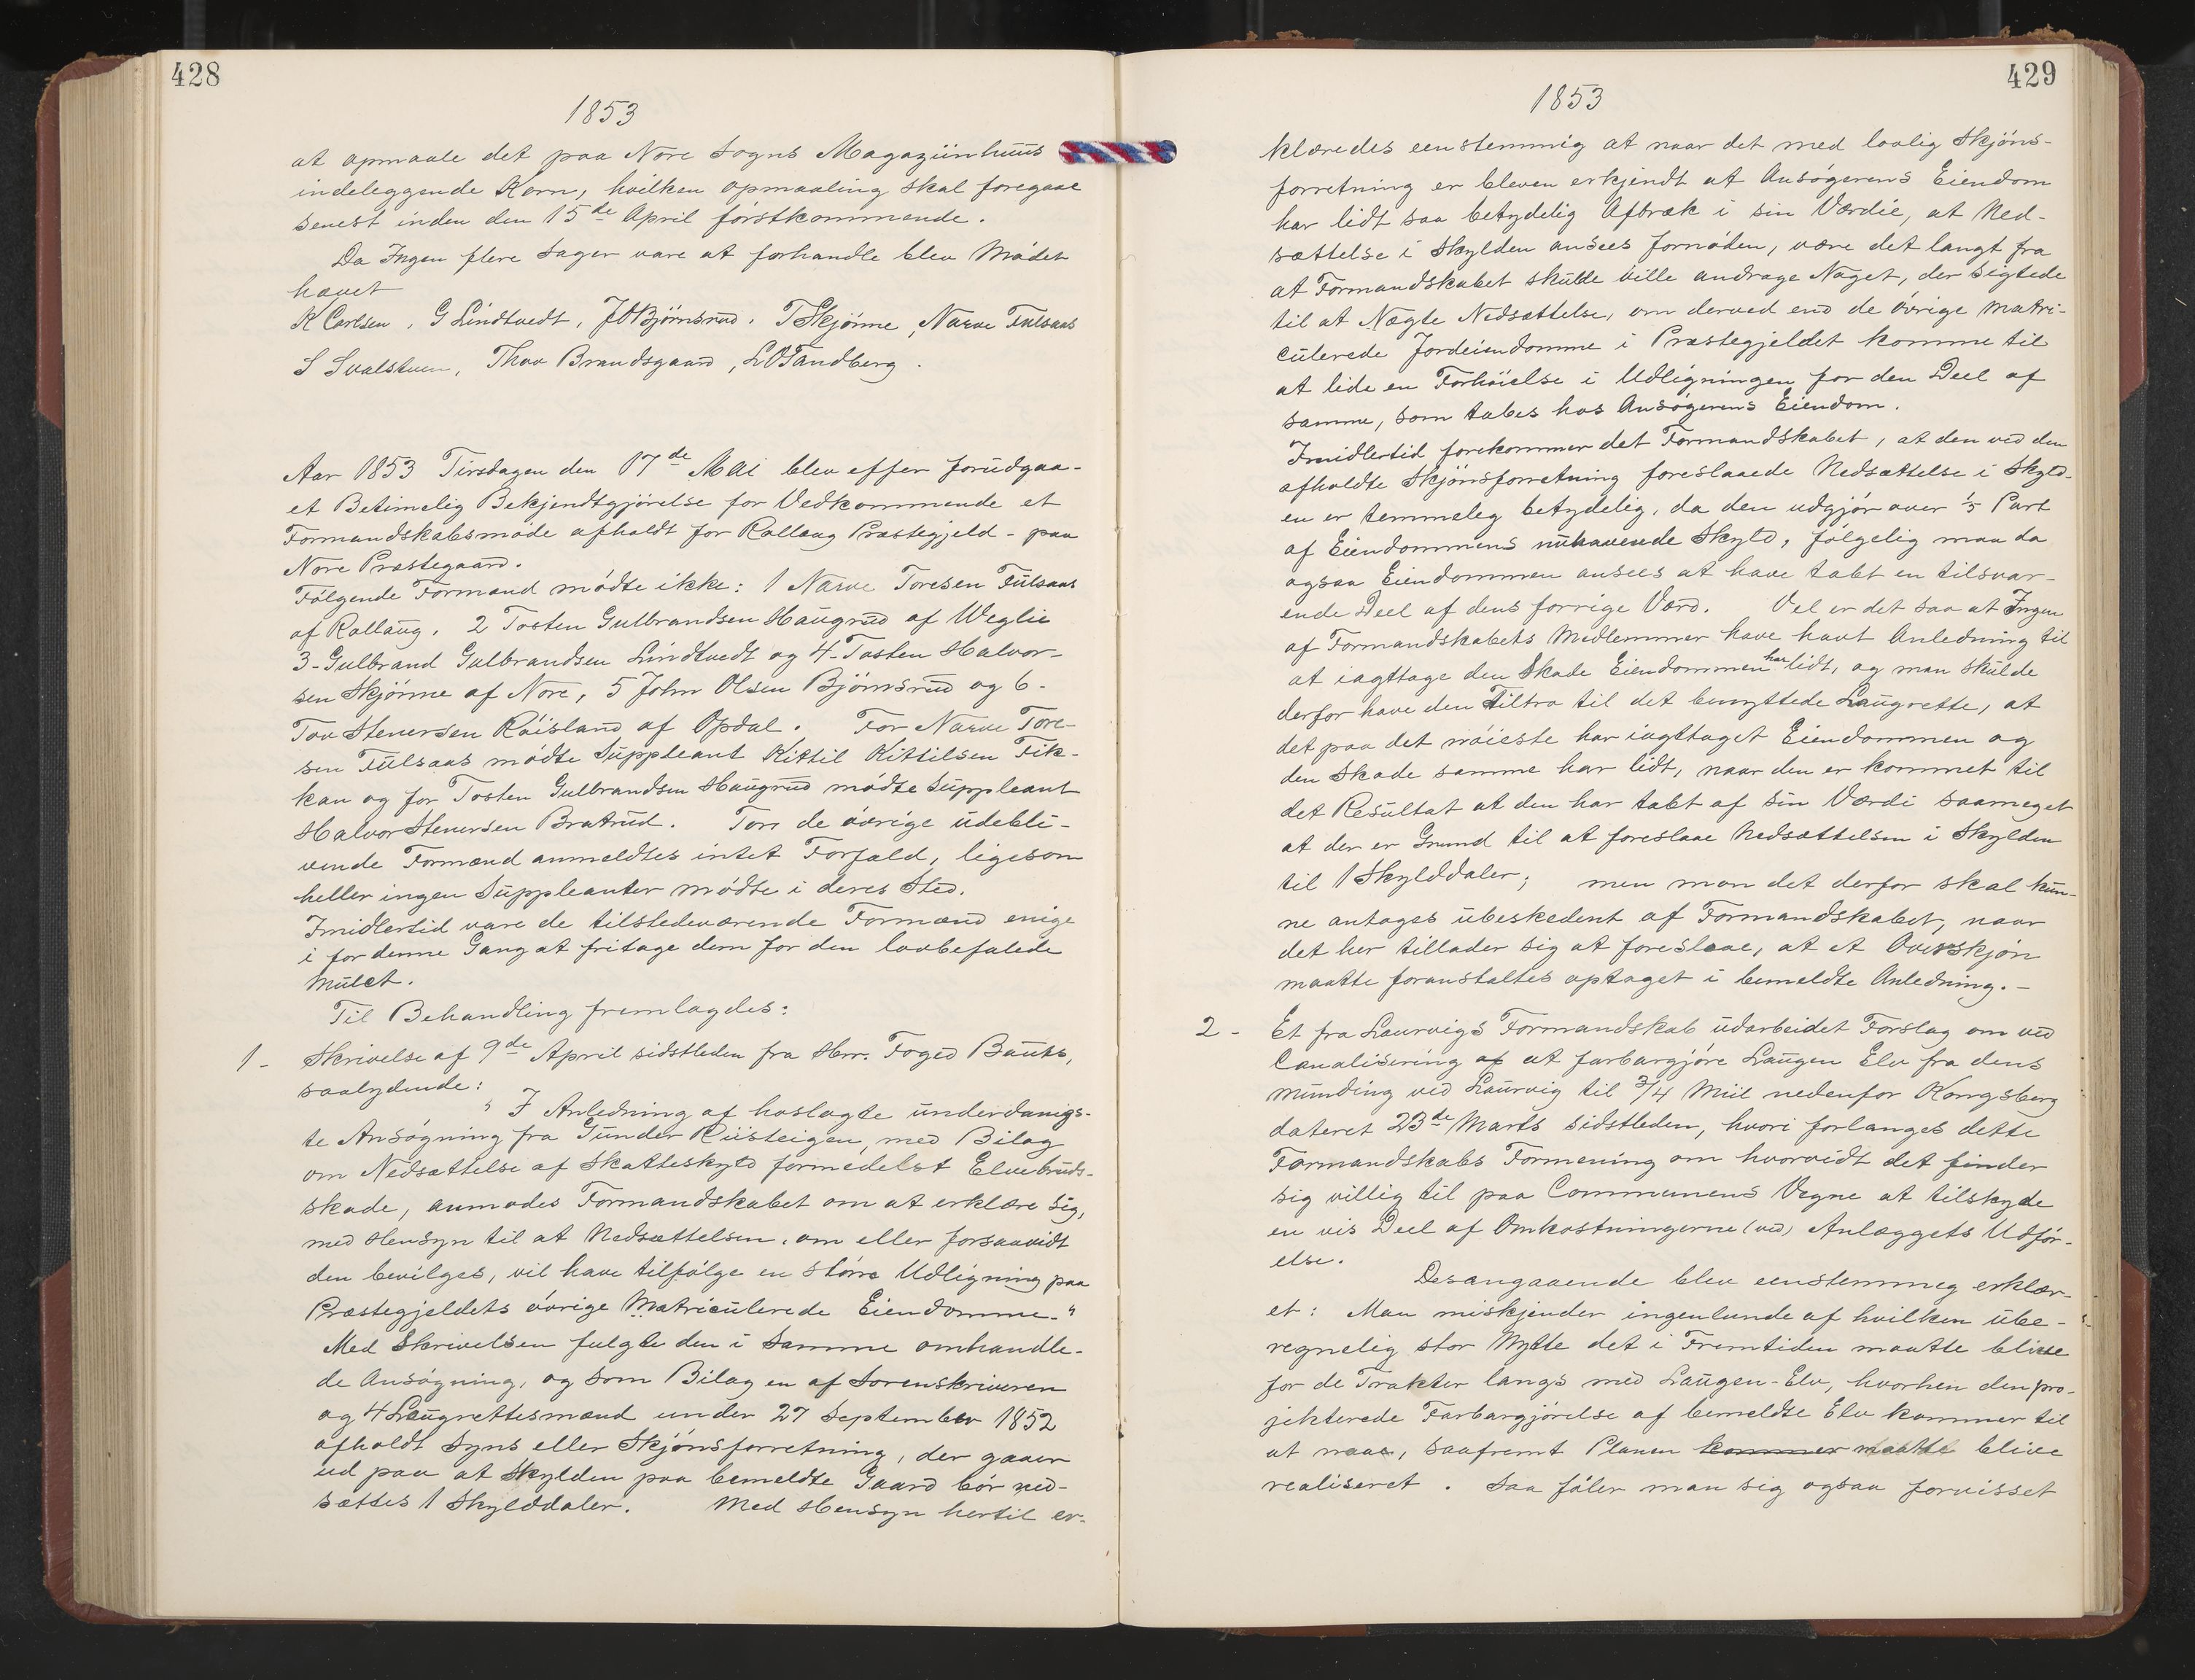 428
1853
at opmaale det paa Nore Sogns Magaziinhuus
indeleggende Korn, hvilken opmaaling skal foregaae
senest inden den 15de April førstkommende.
Da Ingen flere Sager vare at forhandle blev Mødet
hævet
K Carlsen, G Lindtvedt, J O Bjørnsrud, T Skjønne, Narve Fulsaas
S Svalstuen, Thov Brandsgaard, L O Tandberg.
Aar 1853 Tirsdagen den 17de Mai blev efter forudgaa-
et Betimelig Bekjendtgjørelse for Vedkommende et
Formandskabsmøde afholdt for Rollaug Præstegjeld - paa
Nore Præstegaard.
Følgende Formænd mødte ikke: 1 Narve Toresen Fulsaas
af Rollaug, 2 Tosten Gulbrandsen Haugrud af Weglie
3-Gulbrand Gulbrandsen Lindtvedt og 4-Tosten Halvor-
sen Skjønne af Nore, 5 John Olsen Bjørnsrud og 6-
Tov Stenersen Røisland af Opdal. For Narve Tore-
sen Fulsaas mødte Suppleant Kittil Kittilsen Fik-
kan og for Tosten Gulbrandsen Haugrud mødte Suppleant
Halvor Stenersen Bratrud. For de øvrige udebli-
vende Formænd anmeldtes intet Forfald, ligesom
heller ingen Suppleanter mødte i deres Sted.
Imidlertid vare de tilstedeværende Formænd enige
i for denne Gang at fritage dem for den lovbefalede
Mulct.
Til Behandling fremlagdes:
1 - Skrivelse af 9de April sidstleden fra Hrr. Foged Bauks,
saalydende:
"I Anledning af hoslagte underdanigs-
te Ansøgning fra Gunder Riisteigen, med Bilag
om Nedsættelse af Skatteskyld formedelst Elvebruds-
skade, anmodes Formandskabet om at erklære sig,
med Hensyn til at Nedsættelsen, om eller forsaavidt
den bevilges, vil have tilfølge en større Udligning paa
Præstegjeldets øvrige Matriculerede Eiendomme."
Med Skrivelsen fulgte den i Samme omhandle-
de Ansøgning, og som Bilag en af Sorenskriveren
og 4 Laugrettesmænd under 27 September 1852
afholdt Syns eller Skjønsforretning, der gaaer
ud paa at Skylden paa bemeldte Gaard bør ned-
sættes 1 Skylddaler. Med Hensyn hertil er-
429
1853
klæredes eenstemmig at naar det med lovlig Skjøns-
forretning er bleven erkjendt at Ansøgerens Eiendom
har lidt saa betydelig Afbræk i sin Værdie, at Ned-
sættelse i Skylden ansees fornøden, være det langt fra
at Formandskabet skulde ville andrage Noget, der sigtede
til at Nægte Nedsættelse, om derved end de øvrige matri-
culerede Jordeiendomme i Præstegjeldet komme til
at lide en Forhøielse i Udligningen for den Deel af
samme, som tabes hos Ansøgerens Eiendom.
Imidlertid forekommer det Formandskabet, at den ved den
afholdte Skjønsforretning foreslaaede Nedsættelse i Skyld-
en er temmeleg betydelig, da den udgjør over 1/5 Part
af Eiendommens nuhavende Skyld, følgelig maa da
ogsaa Eiendommen ansees at have tabt en tilsvar-
ende Deel af dens forrige Værd. Vel er det saa at Ingen
af Formandskabets Medlemmer have havt Anledning til
at iagttage den Skade Eiendommen har lidt, og man skulde
derfor have den Tiltro til det benyttede Laugrette, at
det paa det nøieste har iagttaget Eiendommen og
den Skade samme har lidt, naar den er kommet til
det Resultat at den har tabt af sin Værdi saameget
at der er Grund til at foreslaae Nedsættelsen i Skylden
til 1 Skylddaler; men mon det derfor skal kun-
ne antages ubeskedent af Formandskabet, naar
det her tillader sig at foreslaae, at et Overskjøn
maatte foranstaltes optaget i bemeldte Anledning.-
2 - Et fra Laurvigs Formandskab udarbeidet Forslag om ved
Canalisering af at farbargjøre Laugen Elv fra dens
munding ved Laurvig til 3/4 Miil nedenfor Kongsberg
dateret 23de Marts sidstleden, hvori forlanges dette
Formandskabs Formening om hvorvidt det finder
sig villig til paa Communens Vegne at tilskyde
en vis Deel af Omkostningerne (ved) Anlæggets Udfør-
else.
Desangaaende blev eenstemmeg erklær-
et: Man miskjender ingenlunde af hvilken ube-
regnelig stor Nytte det i Fremtiden maatte blive
for de Trakter langs med Laugen-Elv, hvorhen den pro-
jekterede Farbargjørelse af bemeldte Elv kommer til
at naae, saafremt Planen kommer maatte blive
realiseret. Saa føler man sig ogsaa forvisset